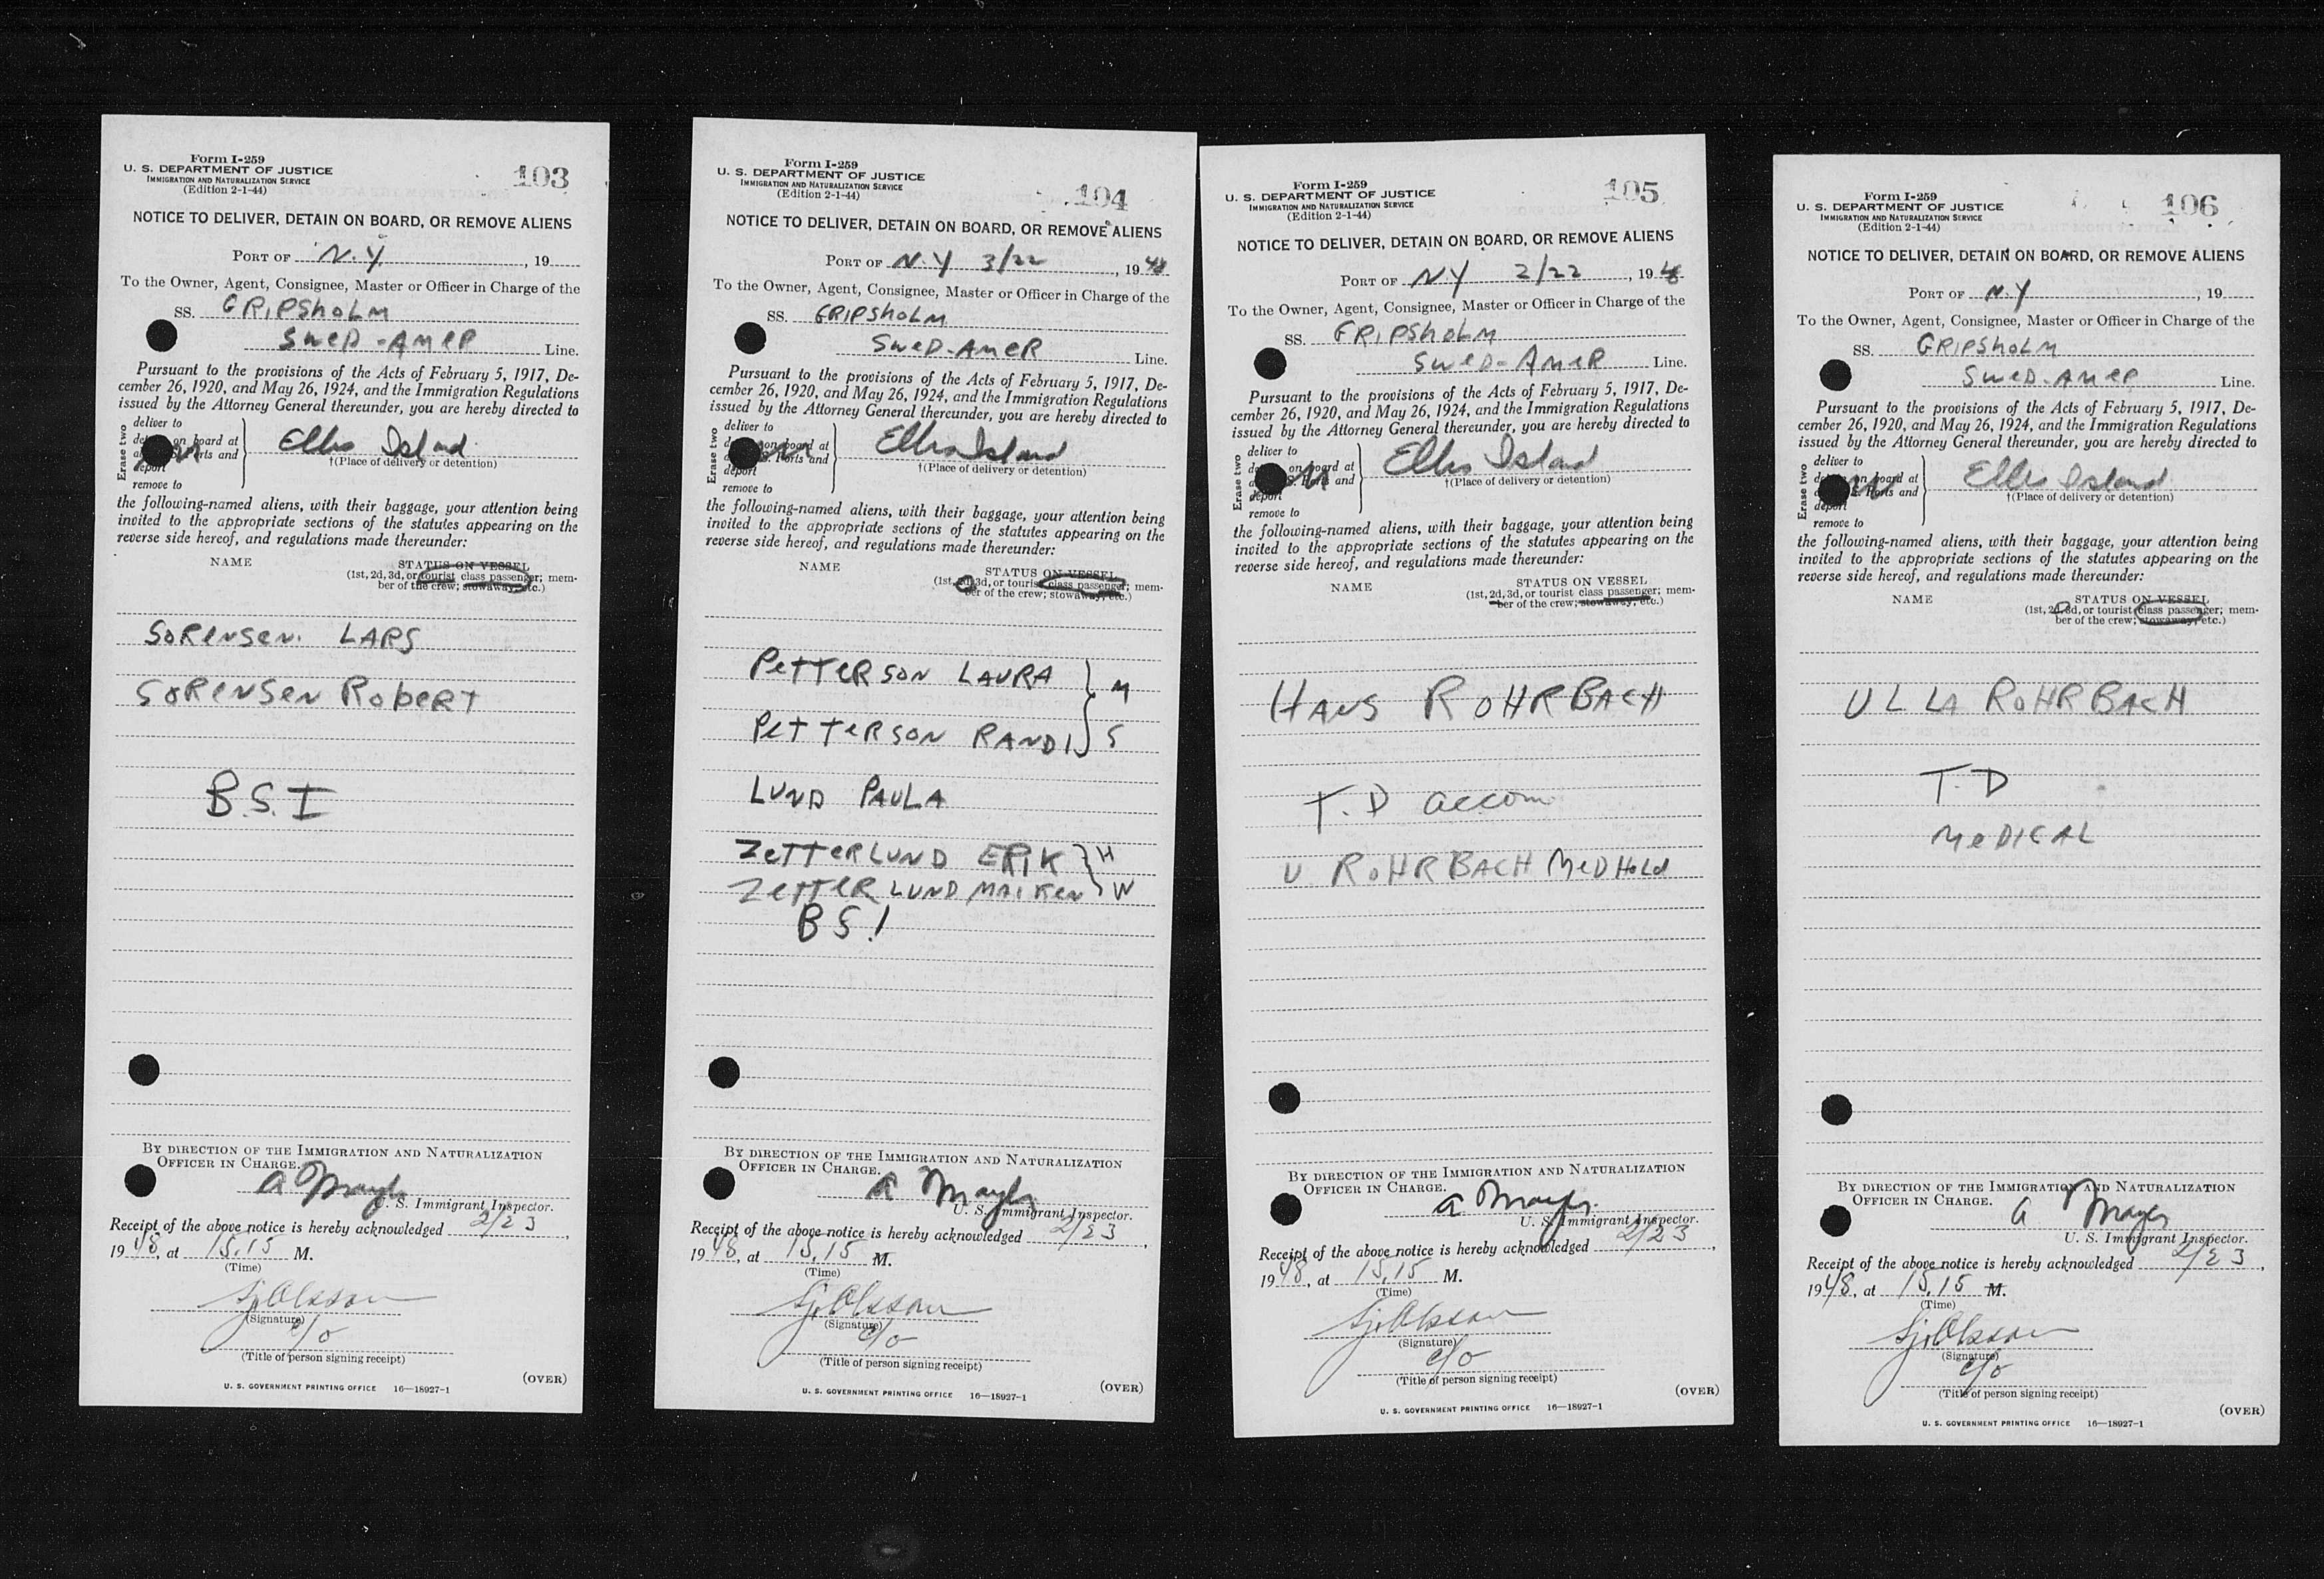 Form I-259
U. S. DEPARTMENT OF JUSTICE
IMMIGRATION AND NATURALIZATION SERVICE
(Edition 2-1-44)
103
NOTICE TO DELIVER, DETAIN ON BOARD, OR REMOVE ALIENS
PORT OF N.Y. , 19
To the Owner, Agent, Consignee, Master or Officer in Charge of the
SS. GRIPSHOLM
SWED-AMER Line.
Pursuant to the provisions of the Acts of February 5, 1917, De-
cember 26, 1920, and May 26, 1924, and the Immigration Regulations
issued by the Attorney General thereunder, you are hereby directed to
Erase two
deliver to
on board at
and
deport
remove to
Ellis Island
†(Place of delivery or detention)
the following-named aliens, with their baggage, your attention being
invited to the appropriate sections of the statutes appearing on the
reverse side hereof, and regulations made thereunder:
NAME
STATUS ON VESSEL
(1st, 2d, 3d, or tourist class passenger; mem-
ber of the crew; stowaway, etc.)
SORENSEN. LARS
SORENSEN ROBERT
B.S.I
BY DIRECTION OF THE IMMIGRATION AND NATURALIZATION
OFFICER IN CHARGE.
U. S. Immigrant Inspector.
Receipt of the above notice is hereby acknowledged 2/23,
1948, at 15.15 M.
(Time)
Olsson
(Signature)
c/o
(Title of person signing receipt)
(OVER)
U. S. GOVERNMENT PRINTING OFFICE 16—18927-1
Form I-259
U. S. DEPARTMENT OF JUSTICE
IMMIGRATION AND NATURALIZATION SERVICE
(Edition 2-1-44)
104
NOTICE TO DELIVER, DETAIN ON BOARD, OR REMOVE ALIENS
PORT OF N.Y 3/22, 1948
To the Owner, Agent, Consignee, Master or Officer in Charge of the
SS. GRIPSHOLM
SWED-AMER Line.
Pursuant to the provisions of the Acts of February 5, 1917, De-
cember 26, 1920, and May 26, 1924, and the Immigration Regulations
issued by the Attorney General thereunder, you are hereby directed to
Erase two
deliver to
on board at
Ports and
deport
remove to
Ellis Island
†(Place of delivery or detention)
the following-named aliens, with their baggage, your attention being
invited to the appropriate sections of the statutes appearing on the
reverse side hereof, and regulations made thereunder:
NAME
STATUS ON VESSEL
(1st, 2d, 3d, or tourist class passenger; mem-
ber of the crew; stowaway, etc.)
PETTERSON LAURA M
PETTERSON RANDI S
LUND PAULA
ZETTERLUND ERIK H
ZETTERLUND MAIKEN W
B S I
BY DIRECTION OF THE IMMIGRATION AND NATURALIZATION
OFFICER IN CHARGE.
U. S. Immigrant Inspector.
Receipt of the above notice is hereby acknowledged 2/23,
1948, at 15.15 M.
(Time)
Olsson
(Signature)
c/o
(Title of person signing receipt)
(OVER)
U. S. GOVERNMENT PRINTING OFFICE 16—18927-1
Form I-259
U. S. DEPARTMENT OF JUSTICE
IMMIGRATION AND NATURALIZATION SERVICE
(Edition 2-1-44)
105
NOTICE TO DELIVER, DETAIN ON BOARD, OR REMOVE ALIENS
PORT OF N.Y 2/22, 1948
To the Owner, Agent, Consignee, Master or Officer in Charge of the
SS. GRIPSHOLM
SWED-AMER Line.
Pursuant to the provisions of the Acts of February 5, 1917, De-
cember 26, 1920, and May 26, 1924, and the Immigration Regulations
issued by the Attorney General thereunder, you are hereby directed to
Erase two
deliver to
on board at
S. Ports and
deport
remove to
Ellis Island
†(Place of delivery or detention)
the following-named aliens, with their baggage, your attention being
invited to the appropriate sections of the statutes appearing on the
reverse side hereof, and regulations made thereunder:
NAME
STATUS ON VESSEL
(1st, 2d, 3d, or tourist class passenger; mem-
ber of the crew; stowaway, etc.)
HANS ROHRBACH
T.D accom
U ROHRBACH MED HOLD
BY DIRECTION OF THE IMMIGRATION AND NATURALIZATION
OFFICER IN CHARGE.
U. S. Immigrant Inspector.
Receipt of the above notice is hereby acknowledged 2/23,
1948, at 15.15 M.
(Time)
Olsson
(Signature)
c/o
(Title of person signing receipt)
(OVER)
U. S. GOVERNMENT PRINTING OFFICE 16—18927-1
Form I-259
U. S. DEPARTMENT OF JUSTICE
IMMIGRATION AND NATURALIZATION SERVICE
(Edition 2-1-44)
106
NOTICE TO DELIVER, DETAIN ON BOARD, OR REMOVE ALIENS
PORT OF N.Y , 19
To the Owner, Agent, Consignee, Master or Officer in Charge of the
SS. GRIPSHOLM
SWED-AMER Line.
Pursuant to the provisions of the Acts of February 5, 1917, De-
cember 26, 1920, and May 26, 1924, and the Immigration Regulations
issued by the Attorney General thereunder, you are hereby directed to
Erase two
deliver to
on board at
Ports and
deport
remove to
Ellis Island
†(Place of delivery or detention)
the following-named aliens, with their baggage, your attention being
invited to the appropriate sections of the statutes appearing on the
reverse side hereof, and regulations made thereunder:
NAME
STATUS ON VESSEL
(1st, 2d, 3d, or tourist class passenger; mem-
ber of the crew; stowaway, etc.)
ULLA ROHRBACH
T.D
MEDICAL
BY DIRECTION OF THE IMMIGRATION AND NATURALIZATION
OFFICER IN CHARGE.
A Mayer
U. S. Immigrant Inspector.
Receipt of the above notice is hereby acknowledged 2/23,
1948, at 15.15 M.
(Time)
Olsson
(Signature)
c/o
(Title of person signing receipt)
(OVER)
U. S. GOVERNMENT PRINTING OFFICE 16—18927-1